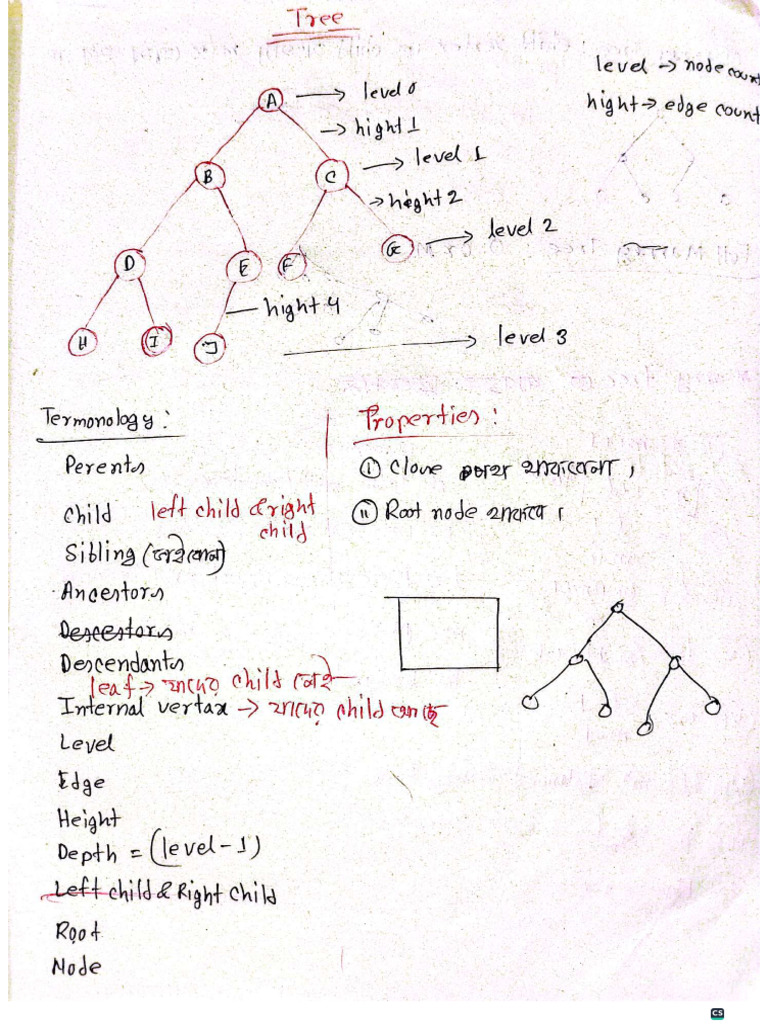 Tree
level → node count
hight → edge count
A → level 0
→ hight 1
B C → level 1
→ height 2
D E F G → level 2
hight 4
H I J → level 3
Termonology :
Perents
Child left child & right child
Sibling (ভাইবোন)
Ancestors
Descestors
Descendants
leaf → যাদের child নেই
Internal vertax → যাদের child আছে
Level
Edge
Height
Depth = (level - 1)
Left child & Right Child
Root
Node
Properties :
(i) Clove থাকবেনা ,
(ii) Root node থাকবে ।
CS